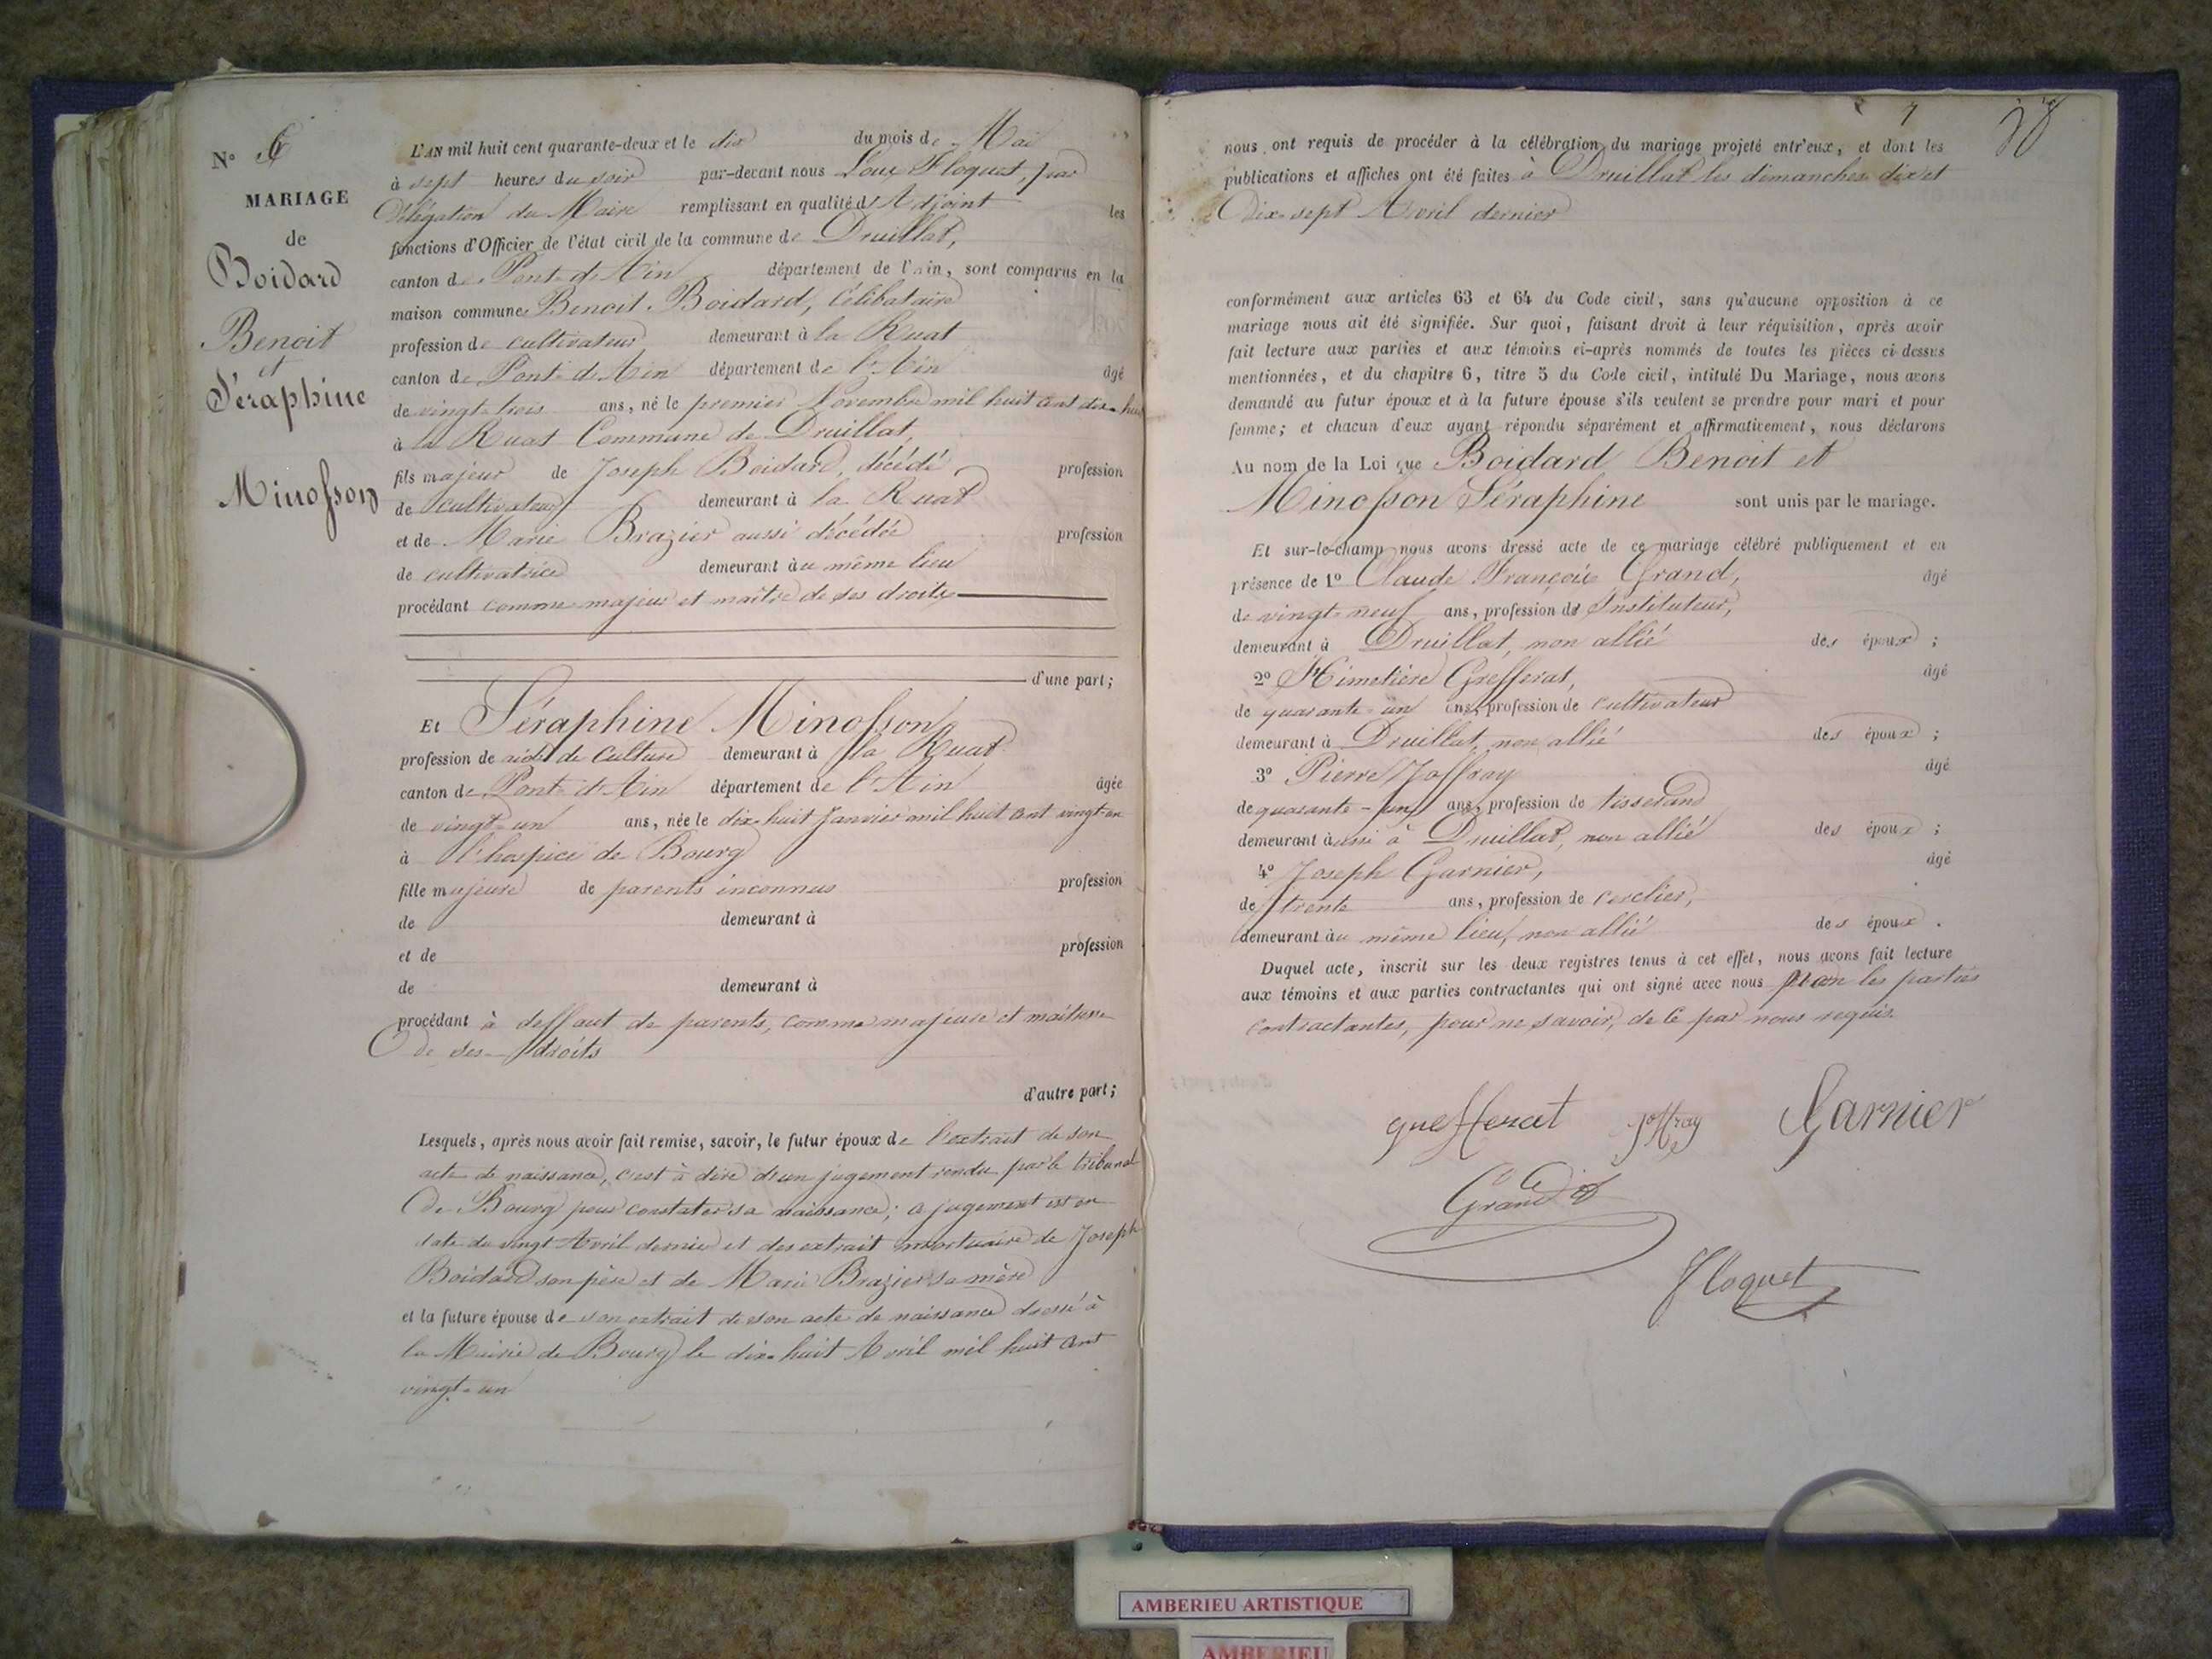 N° 6
MARIAGE
de
Boidard
Benoit
et
Séraphine
Minosson
L'AN mil huit cent quarante-deux et le dix du mois de Mai
à sept heures du soir par-devant nous Louis Floquet, par
Délégation du Maire remplissant en qualité d'Adjoint les
fonctions d'Officier de l'état civil de la commune de Druillat,
canton de Pont-d'Ain département de l'Ain, sont comparus en la
maison commune Benoit Boidard, célibataire
profession de cultivateur demeurant à la Ruat
canton de Pont-d'Ain département de l'Ain âgé
de vingt-trois ans, né le premier Novembre mil huit cent dix-huit
à la Ruat Commune de Druillat,
fils majeur de Joseph Boidard, décédé profession
de cultivateur demeurant à la Ruat
et de Marie Brazier aussi décédée profession
de cultivatrice demeurant au même lieu
procédant comme majeur et maître de ses droits
d'une part;
Et Séraphine Minosson
profession de aide de culture demeurant à la Ruat
canton de Pont-d'Ain département de l'Ain âgée
de vingt-un ans, née le dix-huit Janvier mil huit cent vingt-un
à l'hospice de Bourg
fille majeure de parents inconnus profession
de demeurant à
et de profession
de demeurant à
procédant à deffaut de parents, comme majeure et maîtresse
de ses droits
d'autre part;
Lesquels, après nous avoir fait remise, savoir, le futur époux de l'extrait de son
acte de naissance, c'est à dire d'un jugement rendu par le tribunal
de Bourg pour constater sa naissance; ce jugement est en
date du vingt Avril dernier et des extrait mortuaire de Joseph
Boidard son père et de Marie Brazier sa mère
et la future épouse de son extrait de son acte de naissance dressé à
la Mairie de Bourg le dix-huit Avril mil huit cent
vingt-un
7
nous ont requis de procéder à la célébration du mariage projeté entr'eux, et dont les
publications et affiches ont été faites à Druillat les dimanches dix et
Dix-sept Avril dernier
conformément aux articles 63 et 64 du Code civil, sans qu'aucune opposition à ce
mariage nous ait été signifiée. Sur quoi, faisant droit à leur réquisition, après avoir
fait lecture aux parties et aux témoins ci-après nommés de toutes les pièces ci-dessus
mentionnées, et du chapitre 6, titre 5 du Code civil, intitulé Du Mariage, nous avons
demandé au futur époux et à la future épouse s'ils veulent se prendre pour mari et pour
femme; et chacun d'eux ayant répondu séparément et affirmativement, nous déclarons
Au nom de la Loi que Boidard Benoit et
Minosson Séraphine sont unis par le mariage.
Et sur-le-champ nous avons dressé acte de ce mariage célébré publiquement et en
présence de 1° Claude François Grand, âgé
de vingt-neuf ans, profession de Instituteur,
demeurant à Druillat, non allié des époux ;
2° Himetière Grefferat, âgé
de quarante-un ans, profession de cultivateur
demeurant à Druillat, non allié des époux ;
3° Pierre Joffray âgé
de quarante-un ans, profession de tisserand
demeurant aussi à Druillat, non allié des époux ;
4° Joseph Garnier, âgé
de trente ans, profession de cerclier,
demeurant au même lieu, non allié des époux .
Duquel acte, inscrit sur les deux registres tenus à cet effet, nous avons fait lecture
aux témoins et aux parties contractantes qui ont signé avec nous non les parties
contractantes, pour ne savoir, de ce par nous requis.
Joffray Garnier
Grand
Floquet
AMBERIEU ARTISTIQUE
AMBERIEU